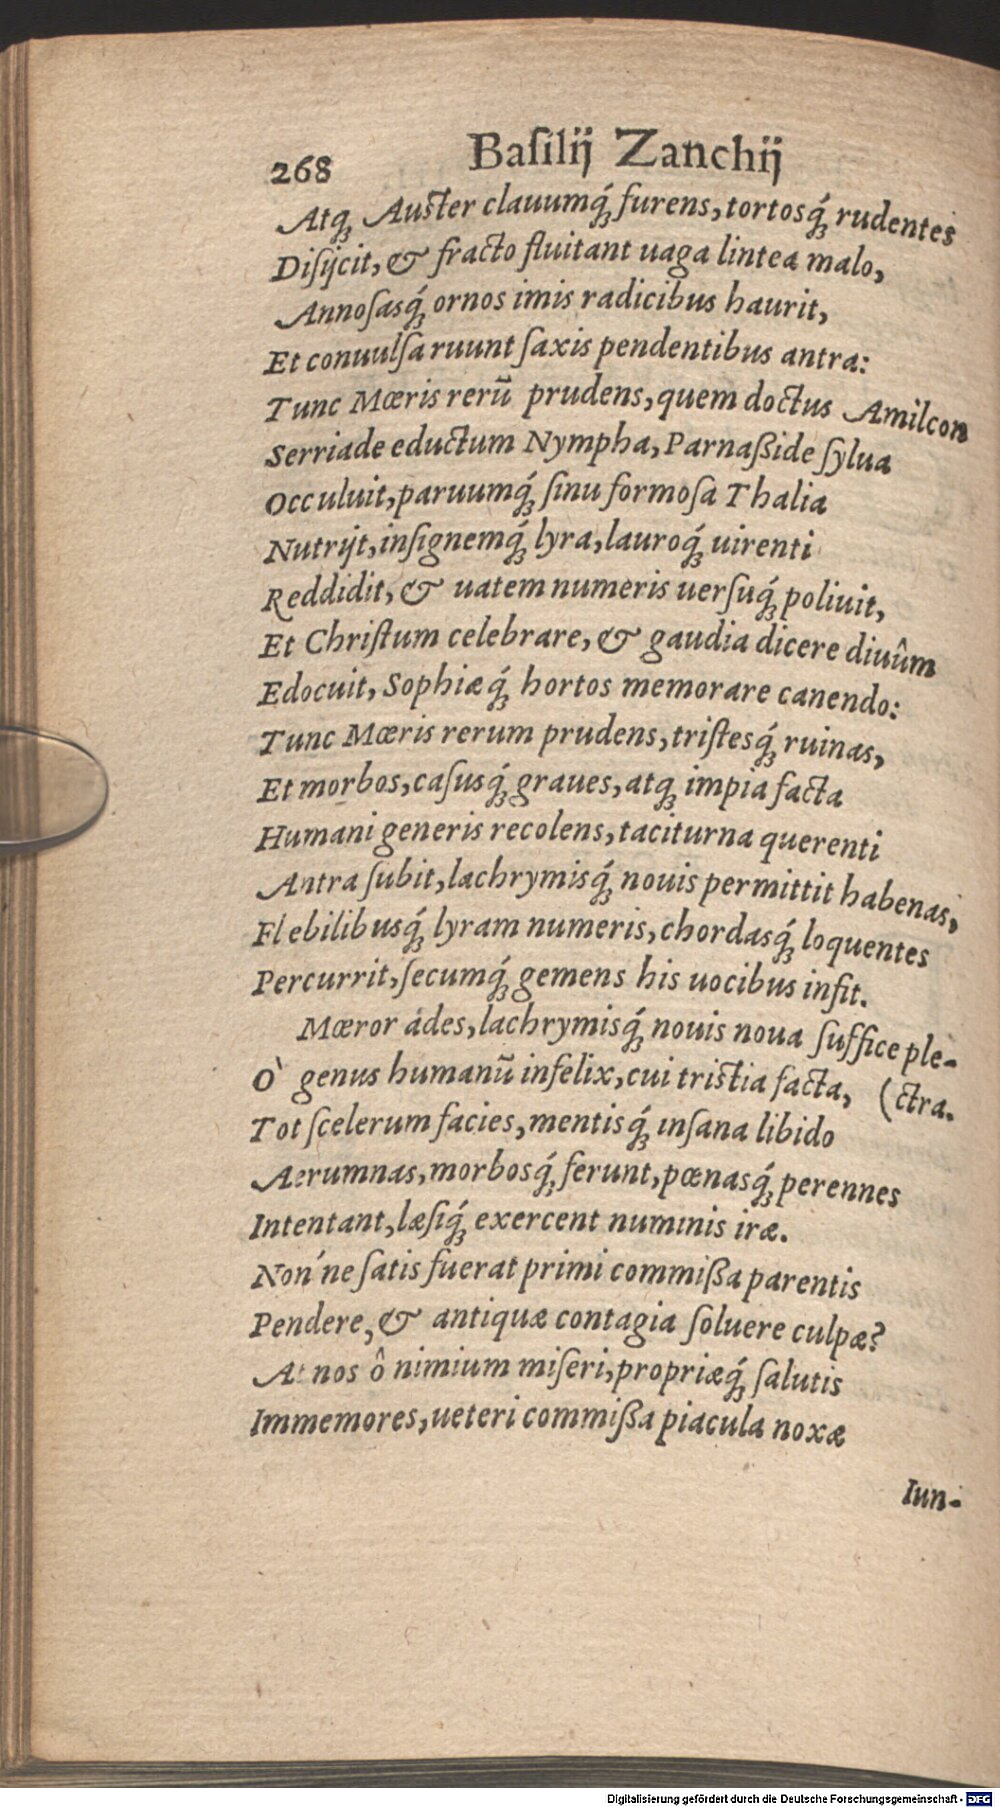 268 Baſilij Zanchij
Atq; Auſter clauumq́; furens, tortosq́; rudentes
Diſijcit, & fracto fluitant uaga lintea malo,
Annoſasq́; ornos imis radicibus haurit,
Et conuulſa ruunt ſaxis pendentibus antra:
Tunc Mœris rerū prudens, quem doctus Amilcon
Serriade eductum Nympha, Parnaßide ſylua
Occuluit, paruumq́; ſinu formoſa Thalia
Nutrijt, inſignemq́; lyra, lauroq́; uirenti
Reddidit, & uatem numeris uerſuq́; poliuit,
Et Chriſtum celebrare, & gaudia dicere diuûm
Edocuit, Sophiæq́; hortos memorare canendo:
Tunc Mœris rerum prudens, triſtesq́; ruinas,
Et morbos, caſusq́; graues, atq; impia facta
Humani generis recolens, taciturna querenti
Antra ſubit, lachrymisq́; nouis permittit habenas,
Flebilibusq́; lyram numeris, chordasq́; loquentes
Percurrit, ſecumq́; gemens his uocibus infit.
Mœror ádes, lachrymisq́; nouis noua ſuffice ple-
Ò genus humanū infelix, cui triſtia facta, (ctra.
Tot ſcelerum facies, mentisq́; inſana libido
Aerumnas, morbosq́; ferunt, pœnasq́; perennes
Intentant, læſiq́; exercent numinis iræ.
Non'ne ſatis fuerat primi commißa parentis
Pendere, & antiquæ contagia ſoluere culpæ?
At nos ô nimium miſeri, propriæq́; ſalutis
Immemores, ueteri commißa piacula noxæ
Iun-
Digitalisierung gefördert durch die Deutsche Forschungsgemeinschaft - DFG